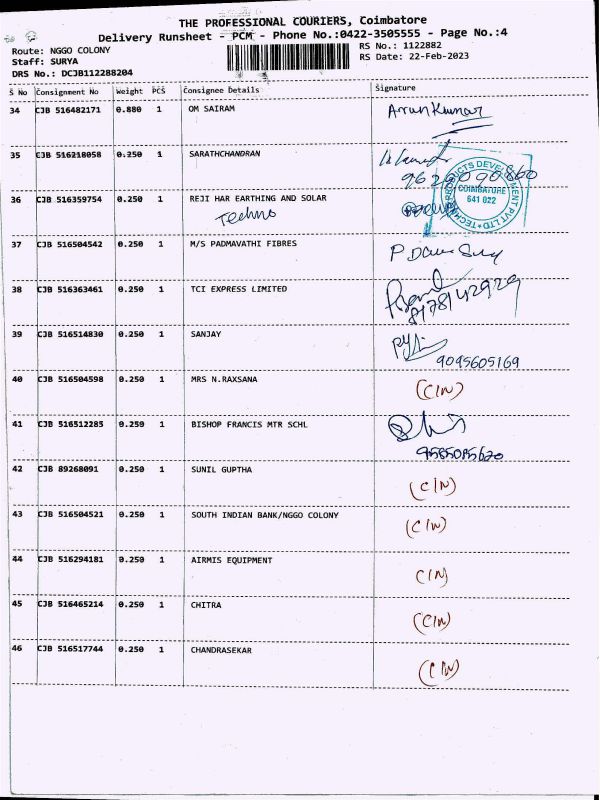 THE PROFESSIONAL COURIERS, Coimbatore
Delivery Runsheet - PCM - Phone No.:0422-3505555 - Page No.:4
Route: NGGO COLONY
Staff: SURYA
DRS No.: DCJB112288204
RS No.: 1122882
RS Date: 22-Feb-2023
S No Consignment No Weight PCS Consignee Details Signature
34 CJB 516482171 0.880 1 OM SAIRAM Arunkumar
35 CJB 516218058 0.250 1 SARATHCHANDRAN
36 CJB 516359754 0.250 1 REJI HAR EARTHING AND SOLAR
Techno
COIMBATORE
641 022
37 CJB 516504542 0.250 1 M/S PADMAVATHI FIBRES
38 CJB 516363461 0.250 1 TCI EXPRESS LIMITED
8178142929
39 CJB 516514830 0.250 1 SANJAY
9095605169
40 CJB 516504598 0.250 1 MRS N.RAXSANA (CIN)
41 CJB 516512285 0.250 1 BISHOP FRANCIS MTR SCHL
9585085620
42 CJB 89268091 0.250 1 SUNIL GUPTHA (CIN)
43 CJB 516504521 0.250 1 SOUTH INDIAN BANK/NGGO COLONY (CIN)
44 CJB 516294181 0.250 1 AIRMIS EQUIPMENT CIN
45 CJB 516465214 0.250 1 CHITRA (CIN)
46 CJB 516517744 0.250 1 CHANDRASEKAR (CIN)